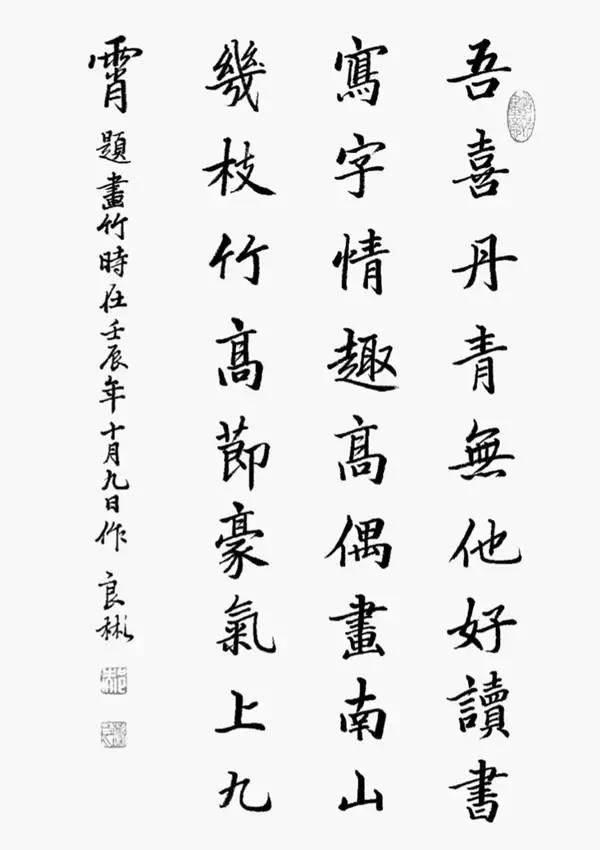 吾喜丹青無他好讀書
寫字情趣高偶畫南山
幾枝竹高節豪氣上九
霄題畫竹時在壬辰年十月九日作 良彬